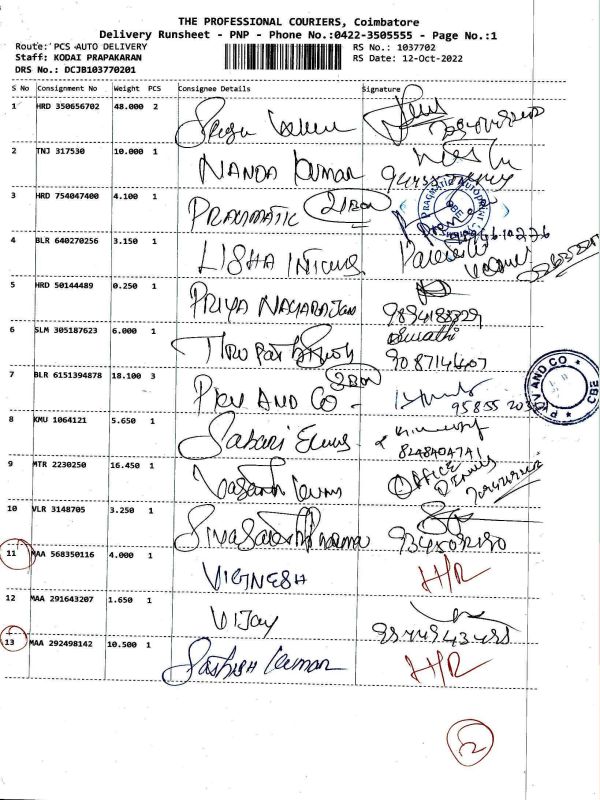 THE PROFESSIONAL COURIERS, Coimbatore
Delivery Runsheet - PNP - Phone No.:0422-3505555 - Page No.:1
Route: PCS-AUTO DELIVERY RS No.: 1037702
Staff: KODAI PRAPAKARAN RS Date: 12-Oct-2022
DRS No.: DCJB103770201
S No Consignment No Weight PCS Consignee Details Signature
1 HRD 350656702 48.000 2
2 TNJ 317530 10.000 1 NANDA Kumar
3 HRD 754047400 4.100 1 PRAGMATIC 2 Box
4 BLR 640270256 3.150 1 LISHA
5 HRD 50144489 0.250 1 PRIYA NAGARAJAN 9894188329
6 SLM 305187623 6.000 1 Swathi 9087146607
7 BLR 6151394878 18.100 3 PKV AND CO - 3 Box 95855
PKV AND CO * CBE *
8 KMU 1064121 5.650 1 Sabari 8248404741
9 MTR 2230250 16.450 1 Vasanth OFFICE
10 VLR 3148705 3.250 1
11 MAA 568350116 4.000 1 VIGNESH H/R
12 MAA 291643207 1.650 1 Vijay
13 MAA 292498142 10.500 1 Sathish Kumar H/R
2